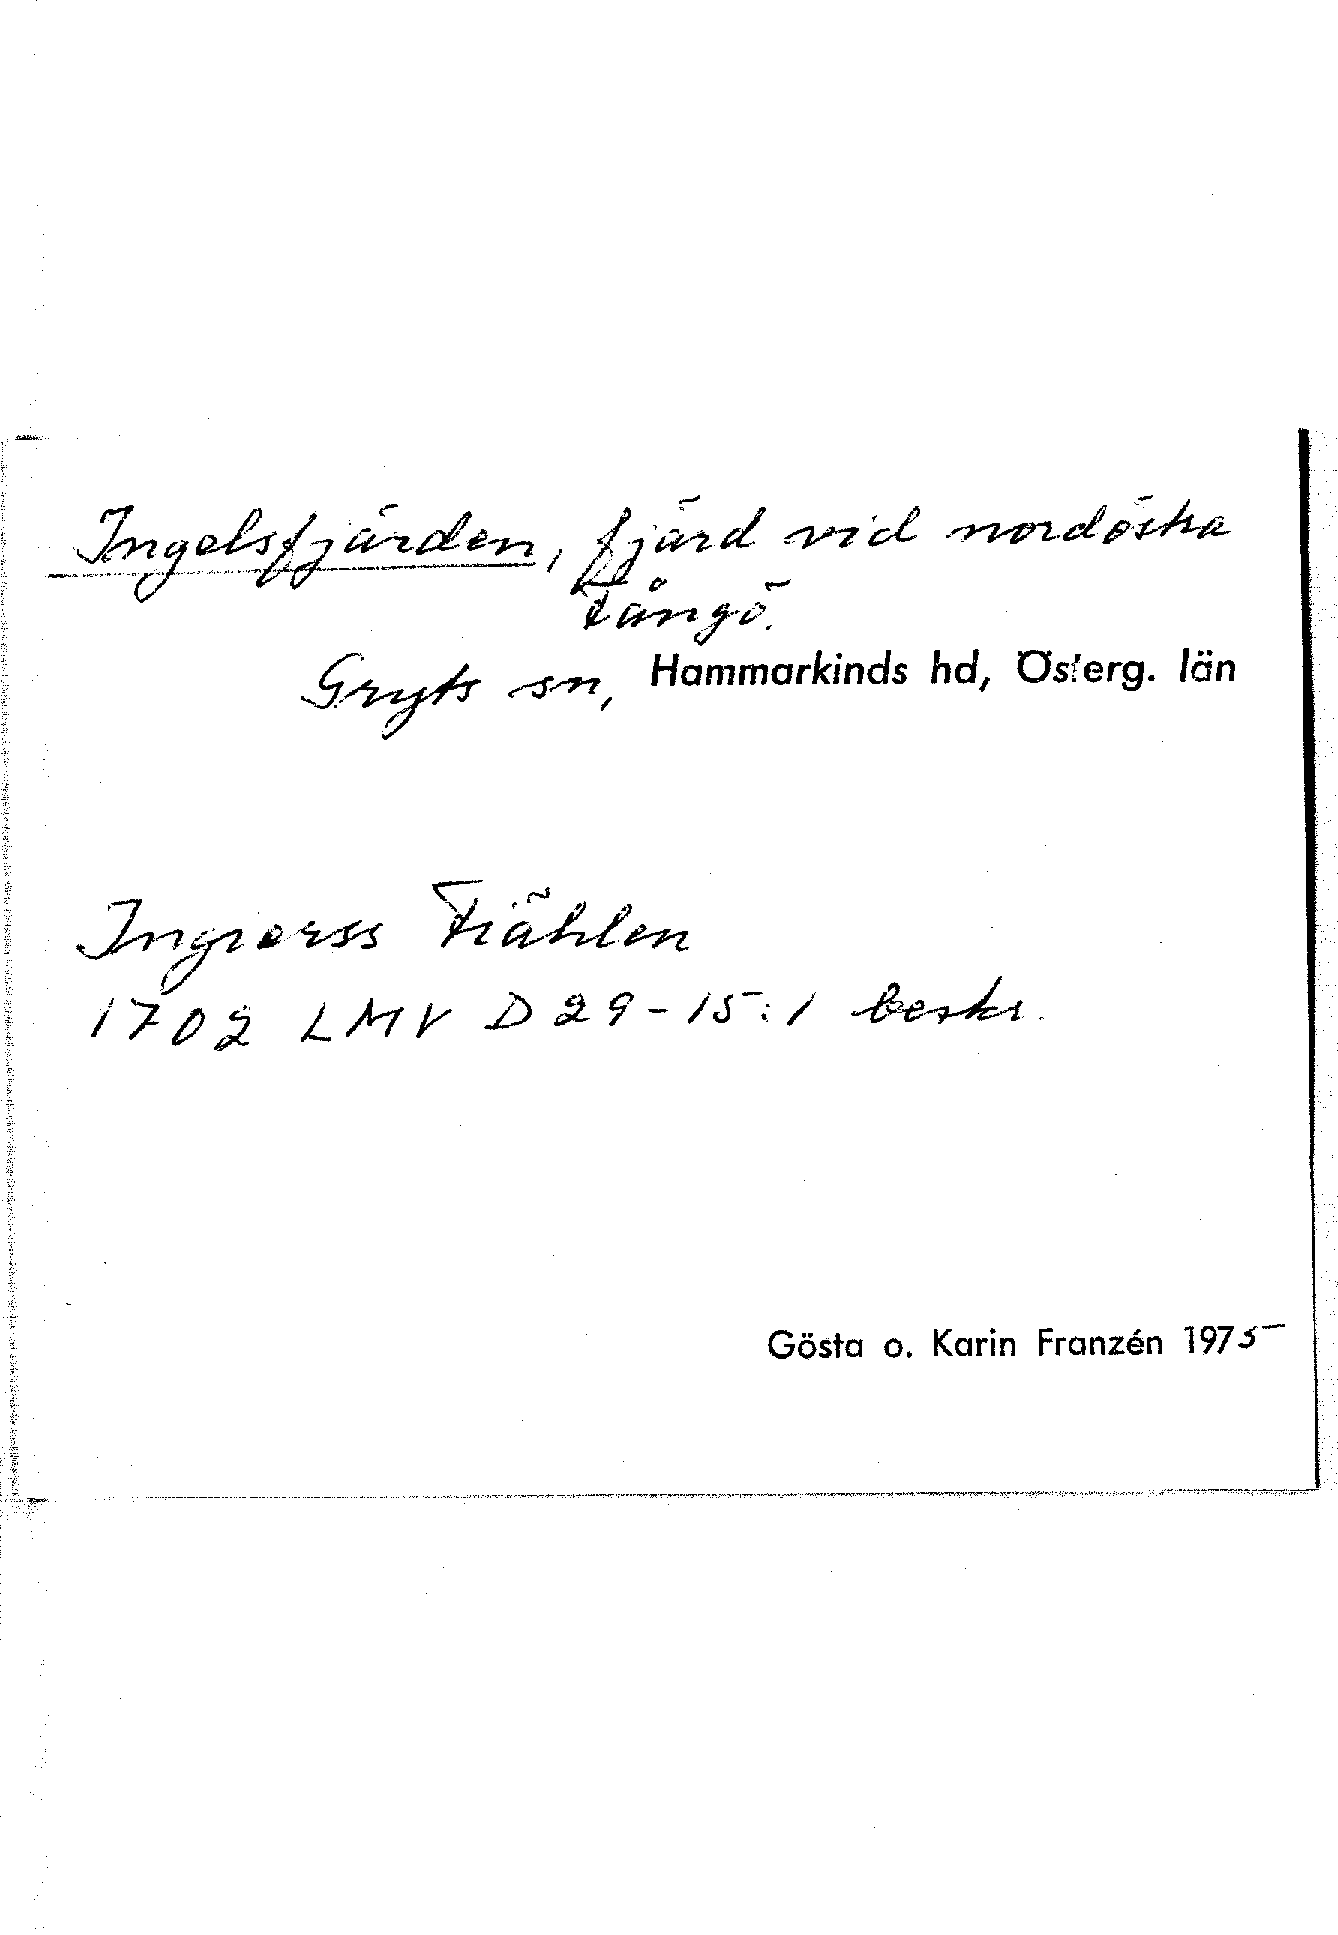 Ingelsfjärden, fjärd vid nordöstra
Fångö.
Gryts sn, Hammarkinds hd, Österg. län
Ingierss Fiählen
1702 LMV D 29-15:1 beskr.
Gösta o. Karin Franzén 1975